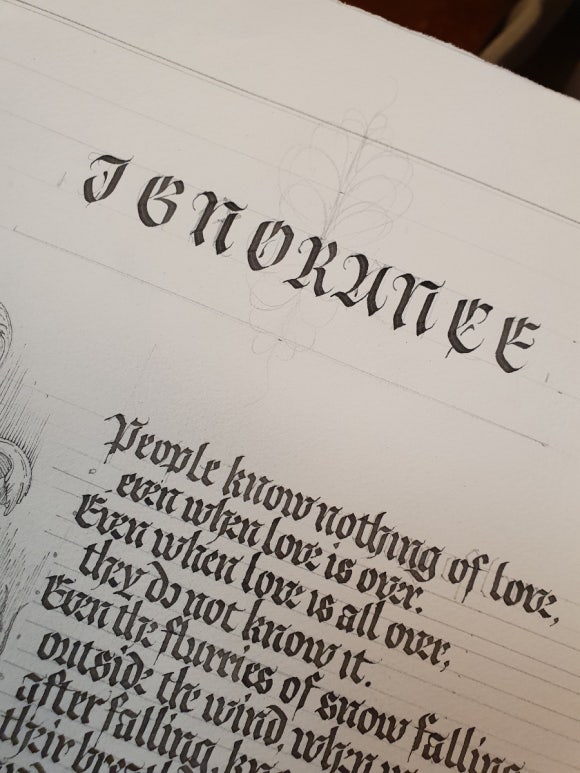 IGNORANCE
People know nothing of love,
even when love is over.
Even when love is all over,
they do not know it.
Even the flurries of snow falling
outside the wind, when
after falling,
their